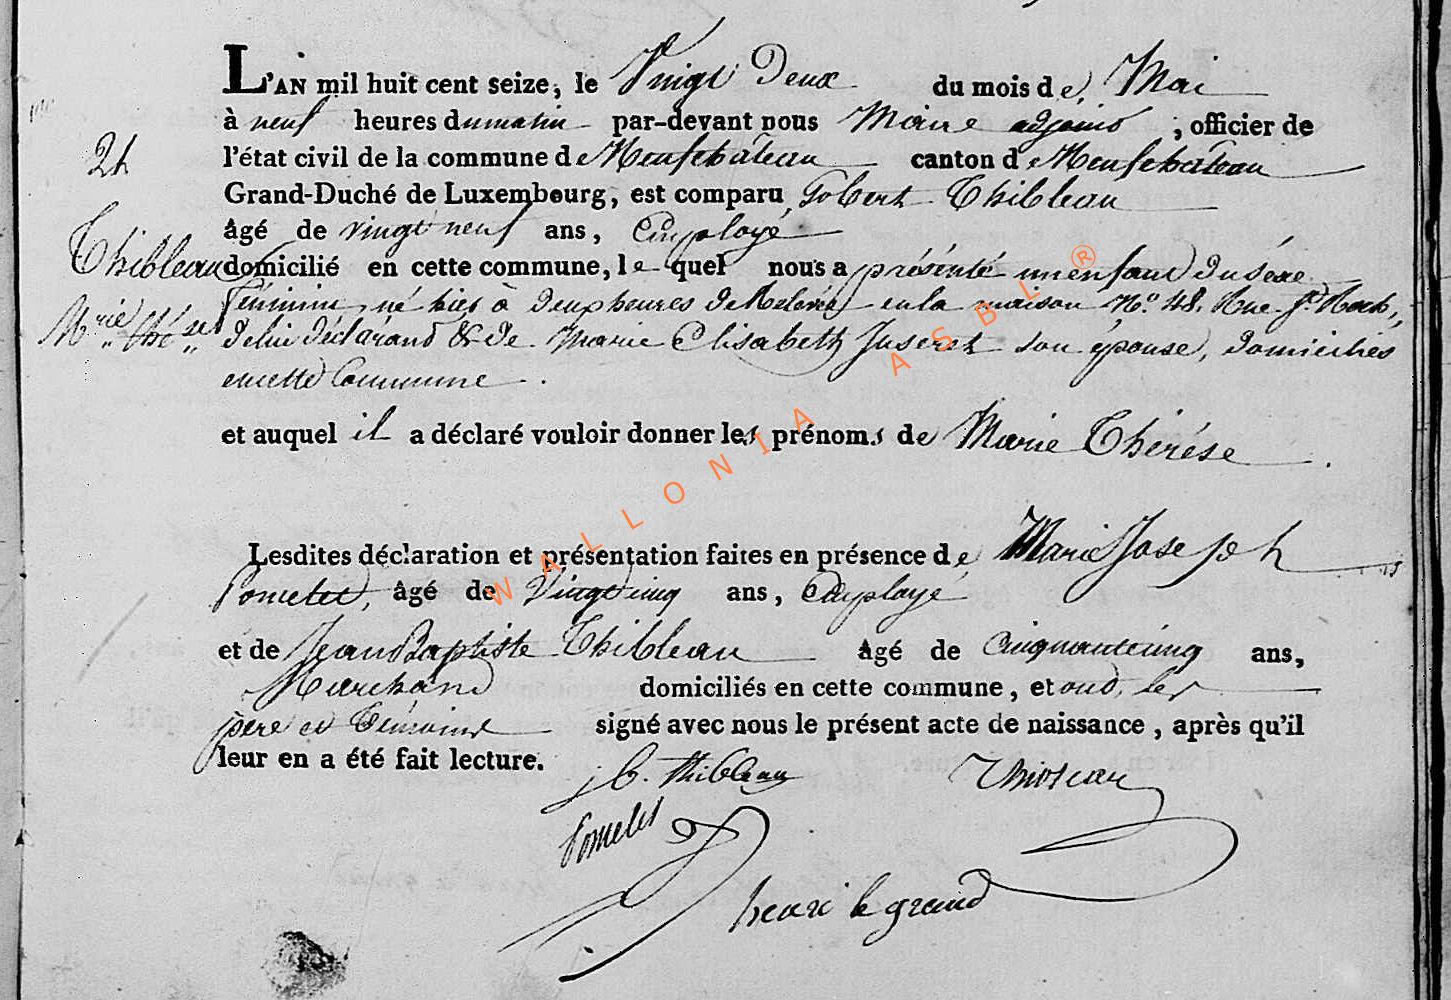 L'AN mil huit cent seize, le Vingt Deux du mois de Mai
à neuf heures du matin par-devant nous Maire adjoint, officier de
24
l'état civil de la commune de Neufchâteau canton de Neufchâteau
Grand-Duché de Luxembourg, est comparu Gobert Thibleau
âgé de vingt neuf ans, Employé
Thibleau
domicilié en cette commune, lequel nous a présenté un enfant du sexe
féminin, né hier à deux heures de Relevée en la maison N.º 48. Rue St. Roch,
Mrie Thése
de lui déclarand & de Marie Elisabeth Juseret son épouse, domiciliés
en cette Commune.
et auquel il a déclaré vouloir donner les prénoms de Marie Thérése.
Lesdites déclaration et présentation faites en présence de Marie Joseph
Poncelet, âgé de Vingt cinq ans, Employé
et de Jean Baptiste Thibleau âgé de Cinquante cinq ans,
Marchand domiciliés en cette commune, et ond les
père et Témoins signé avec nous le présent acte de naissance, après qu'il
leur en a été fait lecture.
j b. thibleau
henri le grand
WALLONIA ASBL ®